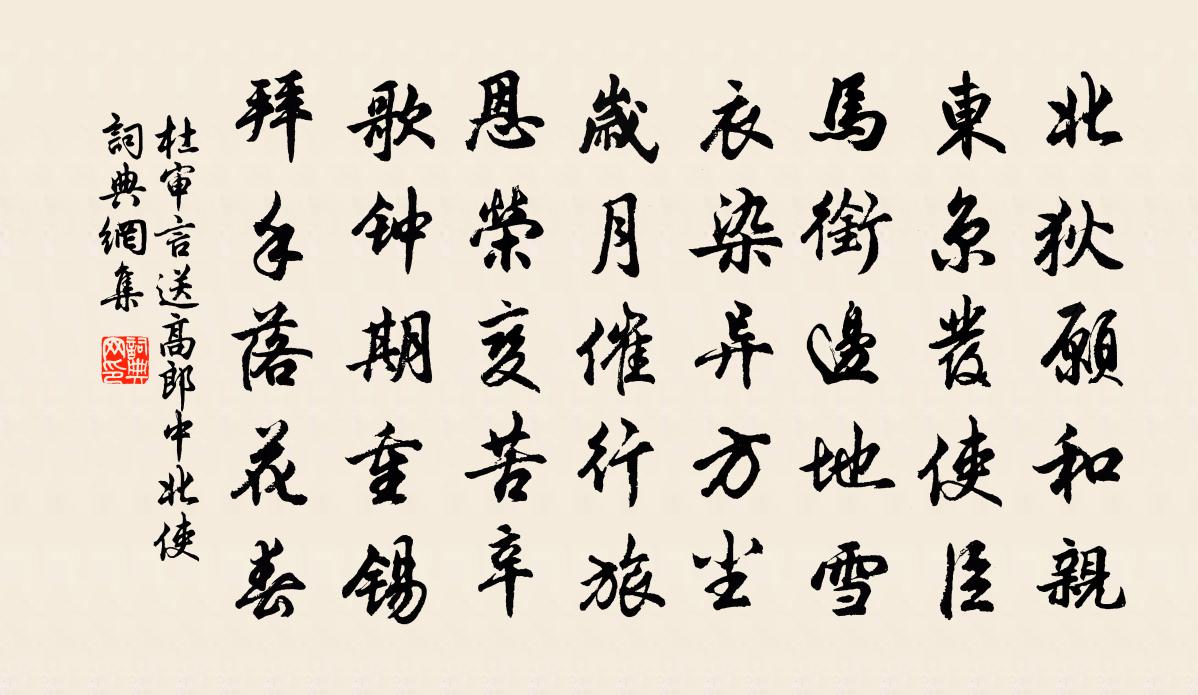 北狄願和親
東京發使臣
馬銜邊地雪
衣染异方尘
歲月催行旅
恩榮变苦辛
歌钟期重锡
拜手落花春
杜审言送高郎中北使
詞典網集
詞典
网印